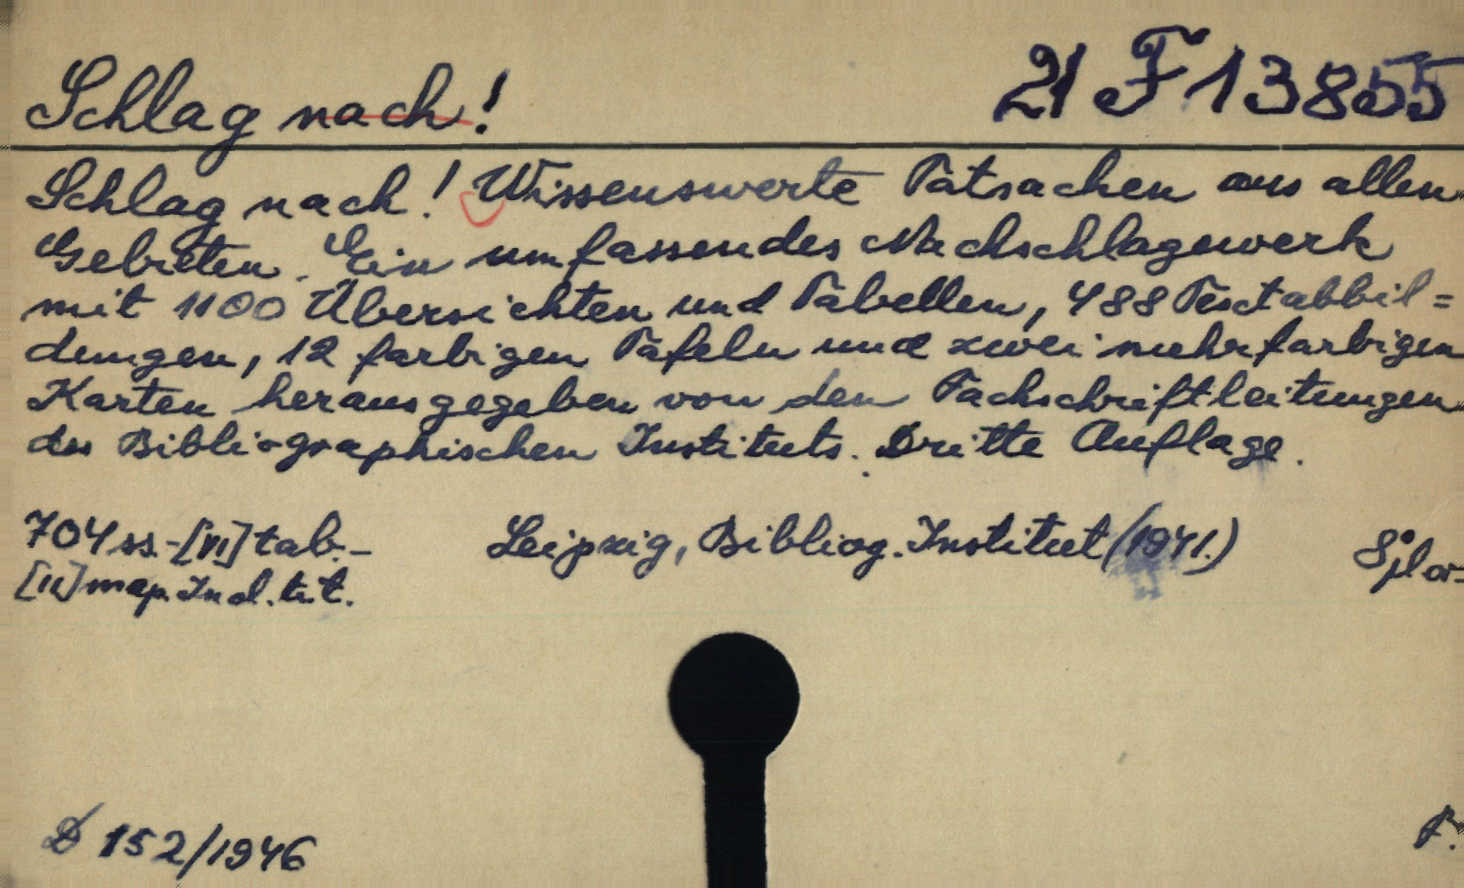 Schlag nach!
21 F 13855
Schlag nach! Wissenswerte Tatsachen aus allen
Gebieten. Ein umfassendes Nachschlagewerk
mit 1100 Übersichten und Tabellen, 488 Textabbil=
dungen, 12 farbigen Tafeln und zwei mehrfarbigen
Karten herausgegeben von den Fachschriftleitungen
des Bibliographischen Instituts. Dritte Auflage.
704 ss.-[VI] tab.- Leipzig, Bibliog. Institut (1941.) 8°
[II] map. Ind. tit.
D 152/1946